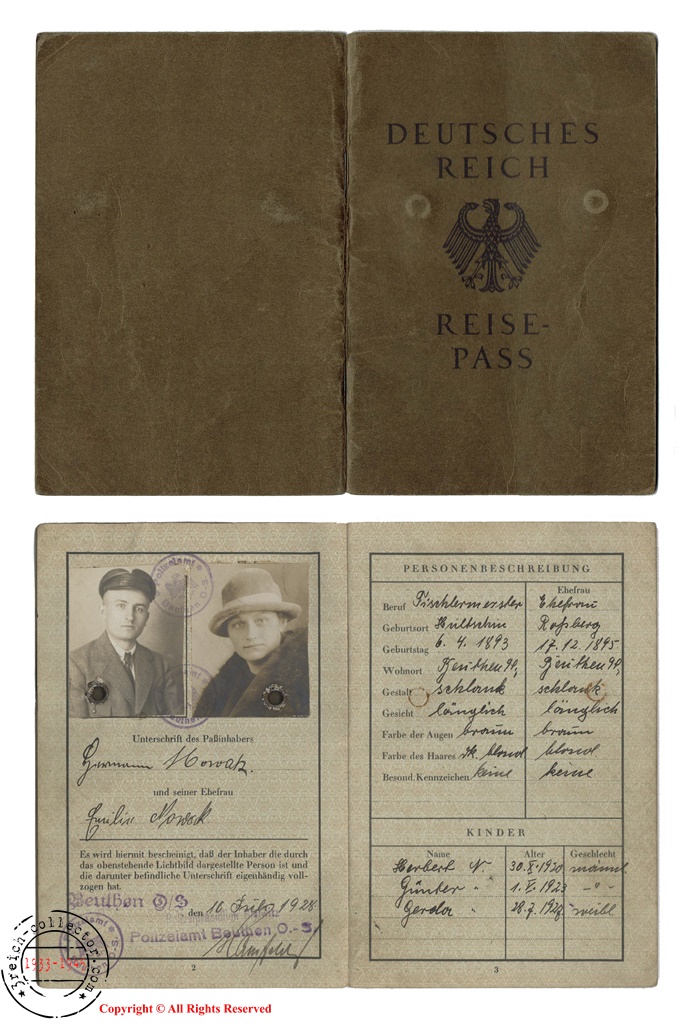 DEUTSCHES
REICH
REISE-
PASS
Polizeiamt
Beuthen O-S
Unterschrift des Paßinhabers
Hermann Nowak.
und seiner Ehefrau
Emilie Nowak
Es wird hiermit bescheinigt, daß der Inhaber die durch
das obenstehende Lichtbild dargestellte Person ist und
die darunter befindliche Unterschrift eigenhändig voll-
zogen hat.
Beuthen O/S
den 16. 1928
Polizeiamt Beuthen, O.-S.
2
PERSONENBESCHREIBUNG
Ehefrau
Beruf Tischlermeister Ehefrau
Geburtsort Hultschin Roßberg
Geburtstag 6. 4. 1893 17. 12. 1895
Wohnort Beuthen Beuthen
Gestalt schlank schlank
Gesicht länglich länglich
Farbe der Augen braun braun
Farbe des Haares dk. blond blond
Besond. Kennzeichen keine keine
KINDER
Name Alter Geschlecht
Herbert N. 30. X. 1920 männl.
Günter " 1. V. 1923 - " -
Gerda " 28. 7. weibl
3
3reich-collector.com
1933-1945
Copyright © All Rights Reserved